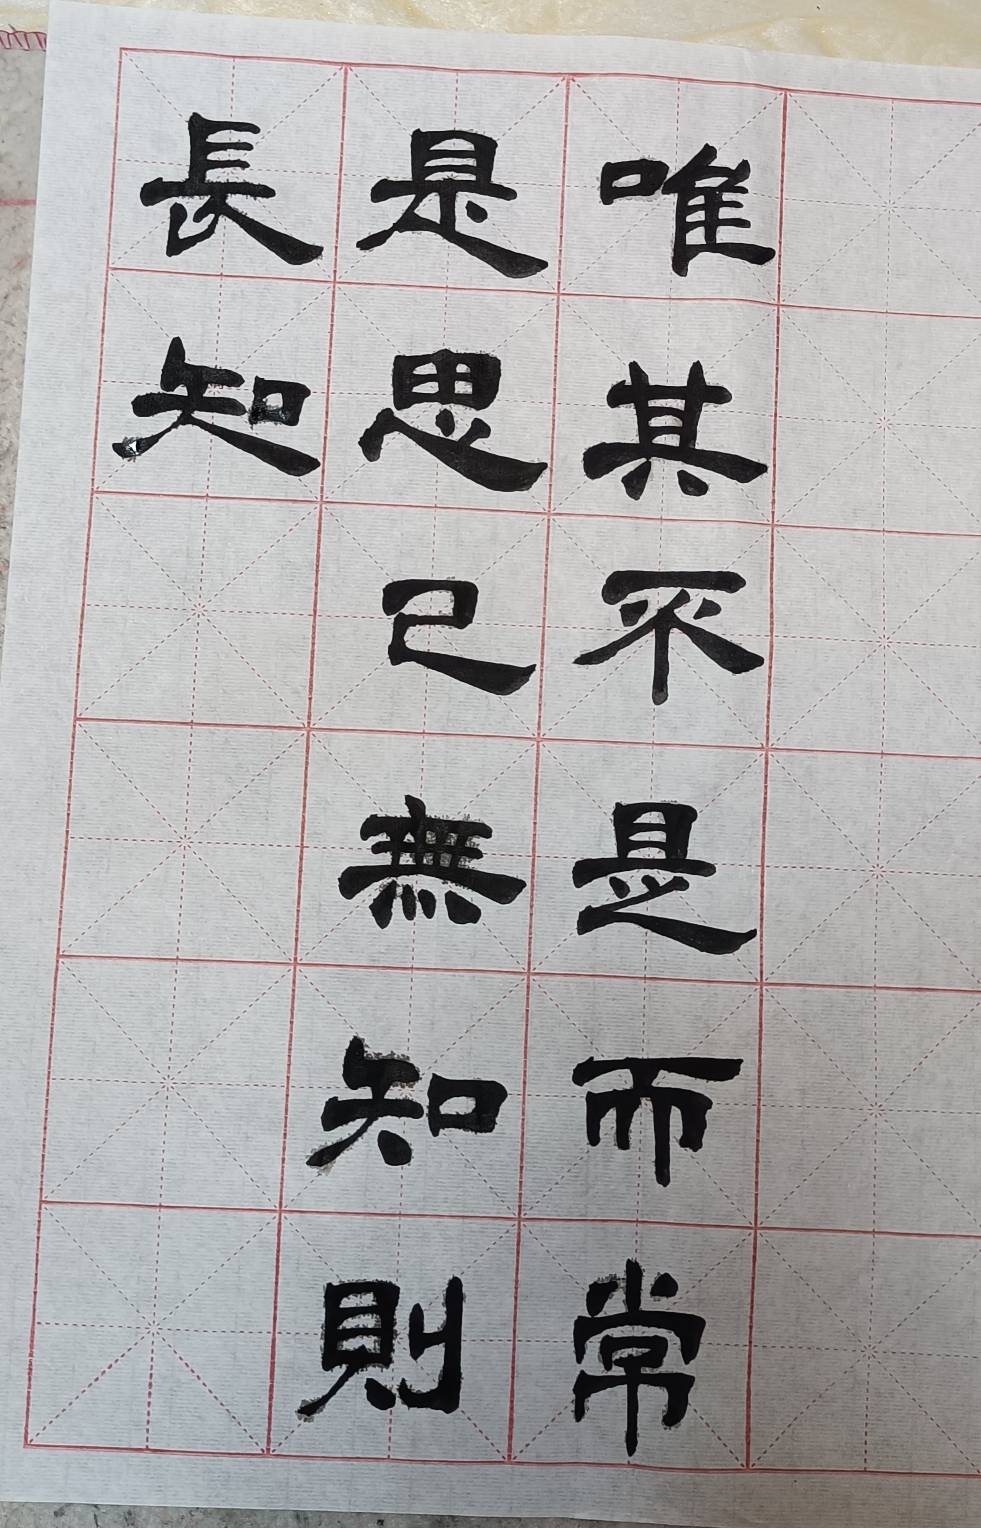 唯其不是而常
是思己無知則
長知